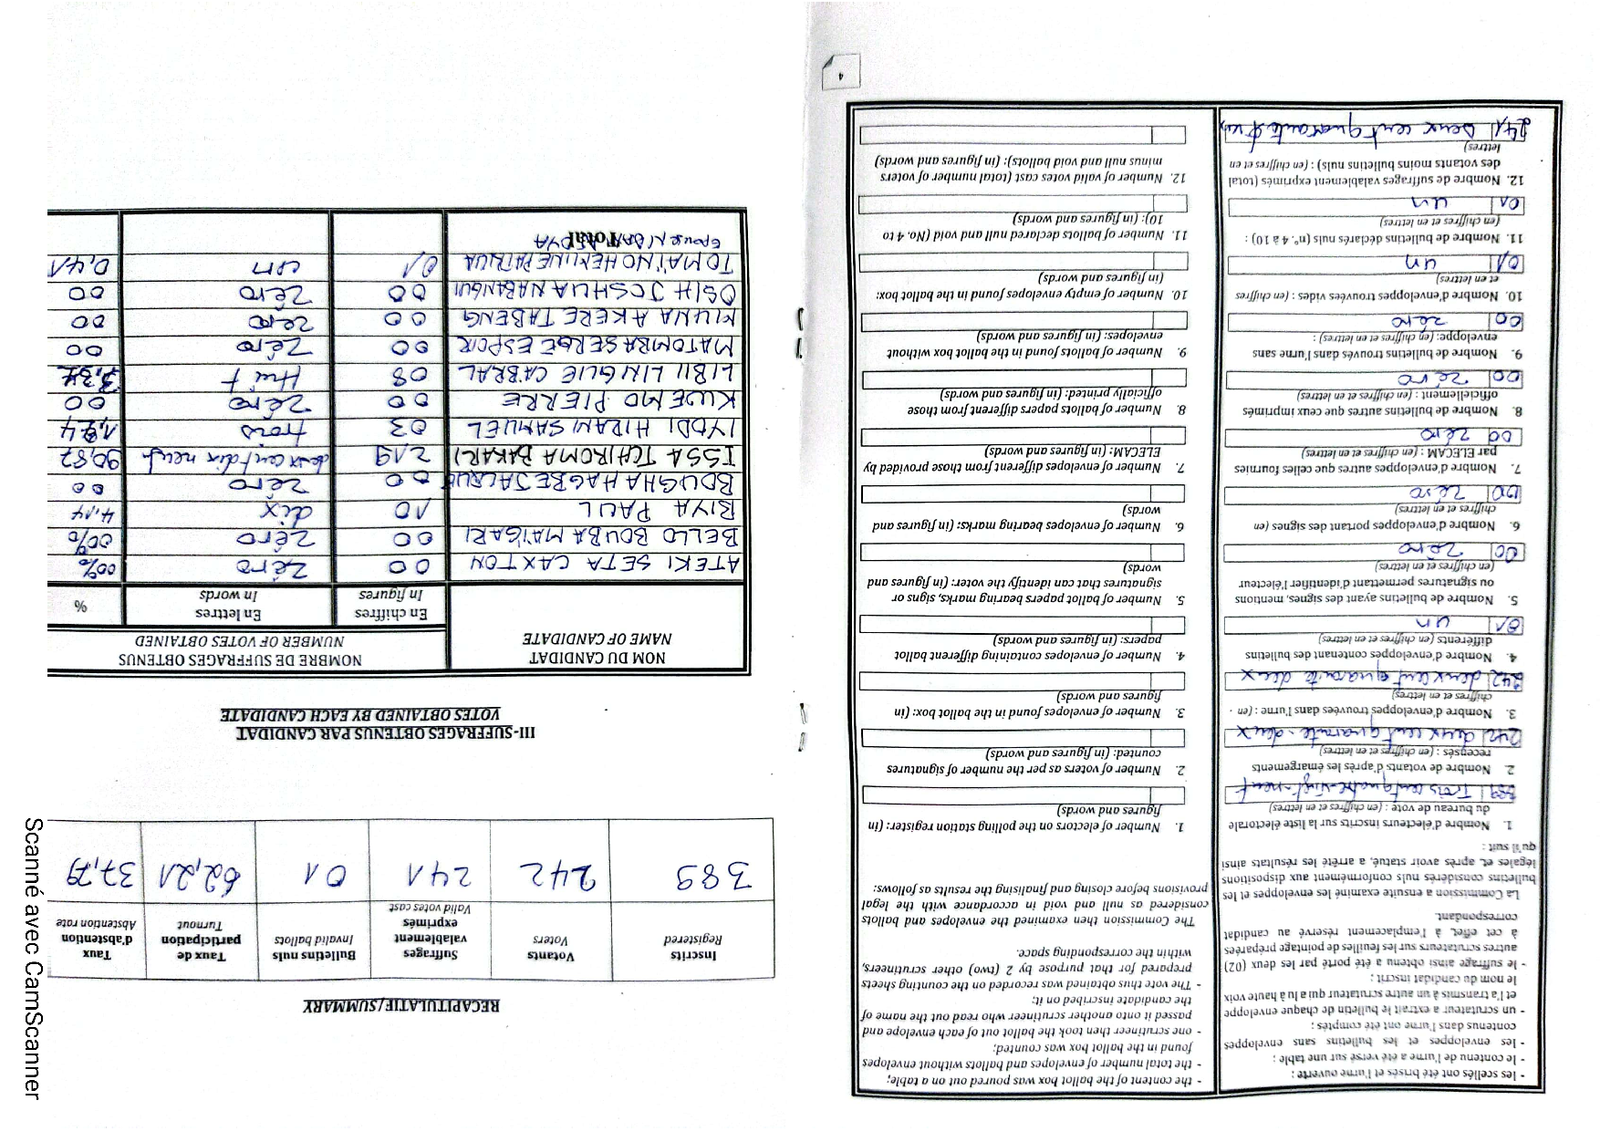 - les scellés ont été brisés et l'urne ouverte ;
- le contenu de l'urne a été versé sur une table ;
- les enveloppes et les bulletins sans enveloppes
contenus dans l'urne ont été comptés ;
- un scrutateur a extrait le bulletin de chaque enveloppe
et l'a transmis à un autre scrutateur qui a lu à haute voix
le nom du candidat inscrit ;
- le suffrage ainsi obtenu a été porté par les deux (02)
autres scrutateurs sur les feuilles de pointage préparées
à cet effet, à l'emplacement réservé au candidat
correspondant.
La Commission a ensuite examiné les enveloppes et les
bulletins considérés nuls conformément aux dispositions
légales et, après avoir statué, a arrêté les résultats ainsi
qu'il suit :
1. Nombre d'électeurs inscrits sur la liste électorale
du bureau de vote : (en chiffres et en lettres)
389 Trois cent quatre-vingt-neuf
2. Nombre de votants d'après les émargements
recensés : (en chiffres et en lettres)
242 deux cent quarante-deux
3. Nombre d'enveloppes trouvées dans l'urne : (en
chiffres et en lettres)
242 deux cent quarante deux
4. Nombre d'enveloppes contenant des bulletins
différents (en chiffres et en lettres)
01 un
5. Nombre de bulletins ayant des signes, mentions
ou signatures permettant d'identifier l'électeur
(en chiffres et en lettres)
00 zéro
6. Nombre d'enveloppes portant des signes (en
chiffres et en lettres)
00 zéro
7. Nombre d'enveloppes autres que celles fournies
par ELECAM : (en chiffres et en lettres)
00 zéro
8. Nombre de bulletins autres que ceux imprimés
officiellement : (en chiffres et en lettres)
00 zéro
9. Nombre de bulletins trouvés dans l'urne sans
enveloppe: (en chiffres et en lettres) :
00 zéro
10. Nombre d'enveloppes trouvées vides : (en chiffres
et en lettres)
01 un
11. Nombre de bulletins déclarés nuls (n°. 4 à 10) :
(en chiffres et en lettres)
01 un
12. Nombre de suffrages valablement exprimés (total
des votants moins bulletins nuls) : (en chiffres et en
lettres)
241 Deux cent quarante et un
- the content of the ballot box was poured out on a table;
- the total number of envelopes and ballots without envelopes
found in the ballot box was counted;
- one scrutineer then took the ballot out of each envelope and
passed it onto another scrutineer who read out the name of
the candidate inscribed on it;
- The vote thus obtained was recorded on the counting sheets
prepared for that purpose by 2 (two) other scrutineers,
within the corresponding space.
The Commission then examined the envelopes and ballots
considered as null and void in accordance with the legal
provisions before closing and finalising the results as follows:
1. Number of electors on the polling station register: (in
figures and words)
2. Number of voters as per the number of signatures
counted: (in figures and words)
3. Number of envelopes found in the ballot box: (in
figures and words)
4. Number of envelopes containing different ballot
papers: (in figures and words)
5. Number of ballot papers bearing marks, signs or
signatures that can identify the voter: (in figures and
words)
6. Number of envelopes bearing marks: (in figures and
words)
7. Number of envelopes different from those provided by
ELECAM: (in figures and words)
8. Number of ballots papers different from those
officially printed: (in figures and words)
9. Number of ballots found in the ballot box without
envelopes: (in figures and words)
10. Number of empty envelopes found in the ballot box:
(in figures and words)
11. Number of ballots declared null and void (No. 4 to
10): (in figures and words)
12. Number of valid votes cast (total number of voters
minus null and void ballots): (in figures and words)
4
RECAPITULATIF/SUMMARY
Inscrits Registered Votants Voters Suffrages valablement exprimés Valid votes cast Bulletins nuls Invalid ballots Taux de participation Turnout Taux d'abstention Abstention rate
389 242 241 01 62,21 37,79
III-SUFFRAGES OBTENUS PAR CANDIDAT
VOTES OBTAINED BY EACH CANDIDATE
NOM DU CANDIDAT
NAME OF CANDIDATE
NOMBRE DE SUFFRAGES OBTENUS
NUMBER OF VOTES OBTAINED
En chiffres In figures En lettres In words %
ATEKI SETA CAXTON 00 zéro 00%
BELLO BOUBA MAÏGARI 00 zéro 00%
BIYA PAUL 10 dix 4,14
BOUGHA HAGBE JACQUE 00 zéro 00
ISSA TCHIROMA BAKARI 219 deux cent dix neuf 90,87
IYODI HIRAM SAMUEL 03 trois
KWEMO PIERRE 00 zéro 00
LIBII LI NGUE CABRAL 08 Huit
MATOMBA SERGE ESPOIR 00 zéro 00
MUNA AKERE TABENG 00 zéro 00
OSIH JOSHUA NABANGUI 00 zéro 00
TOMAÏNO HERMINE PATRICIA 01 un 0,41
épouse NDAM NJOYA
Total
Scanné avec CamScanner